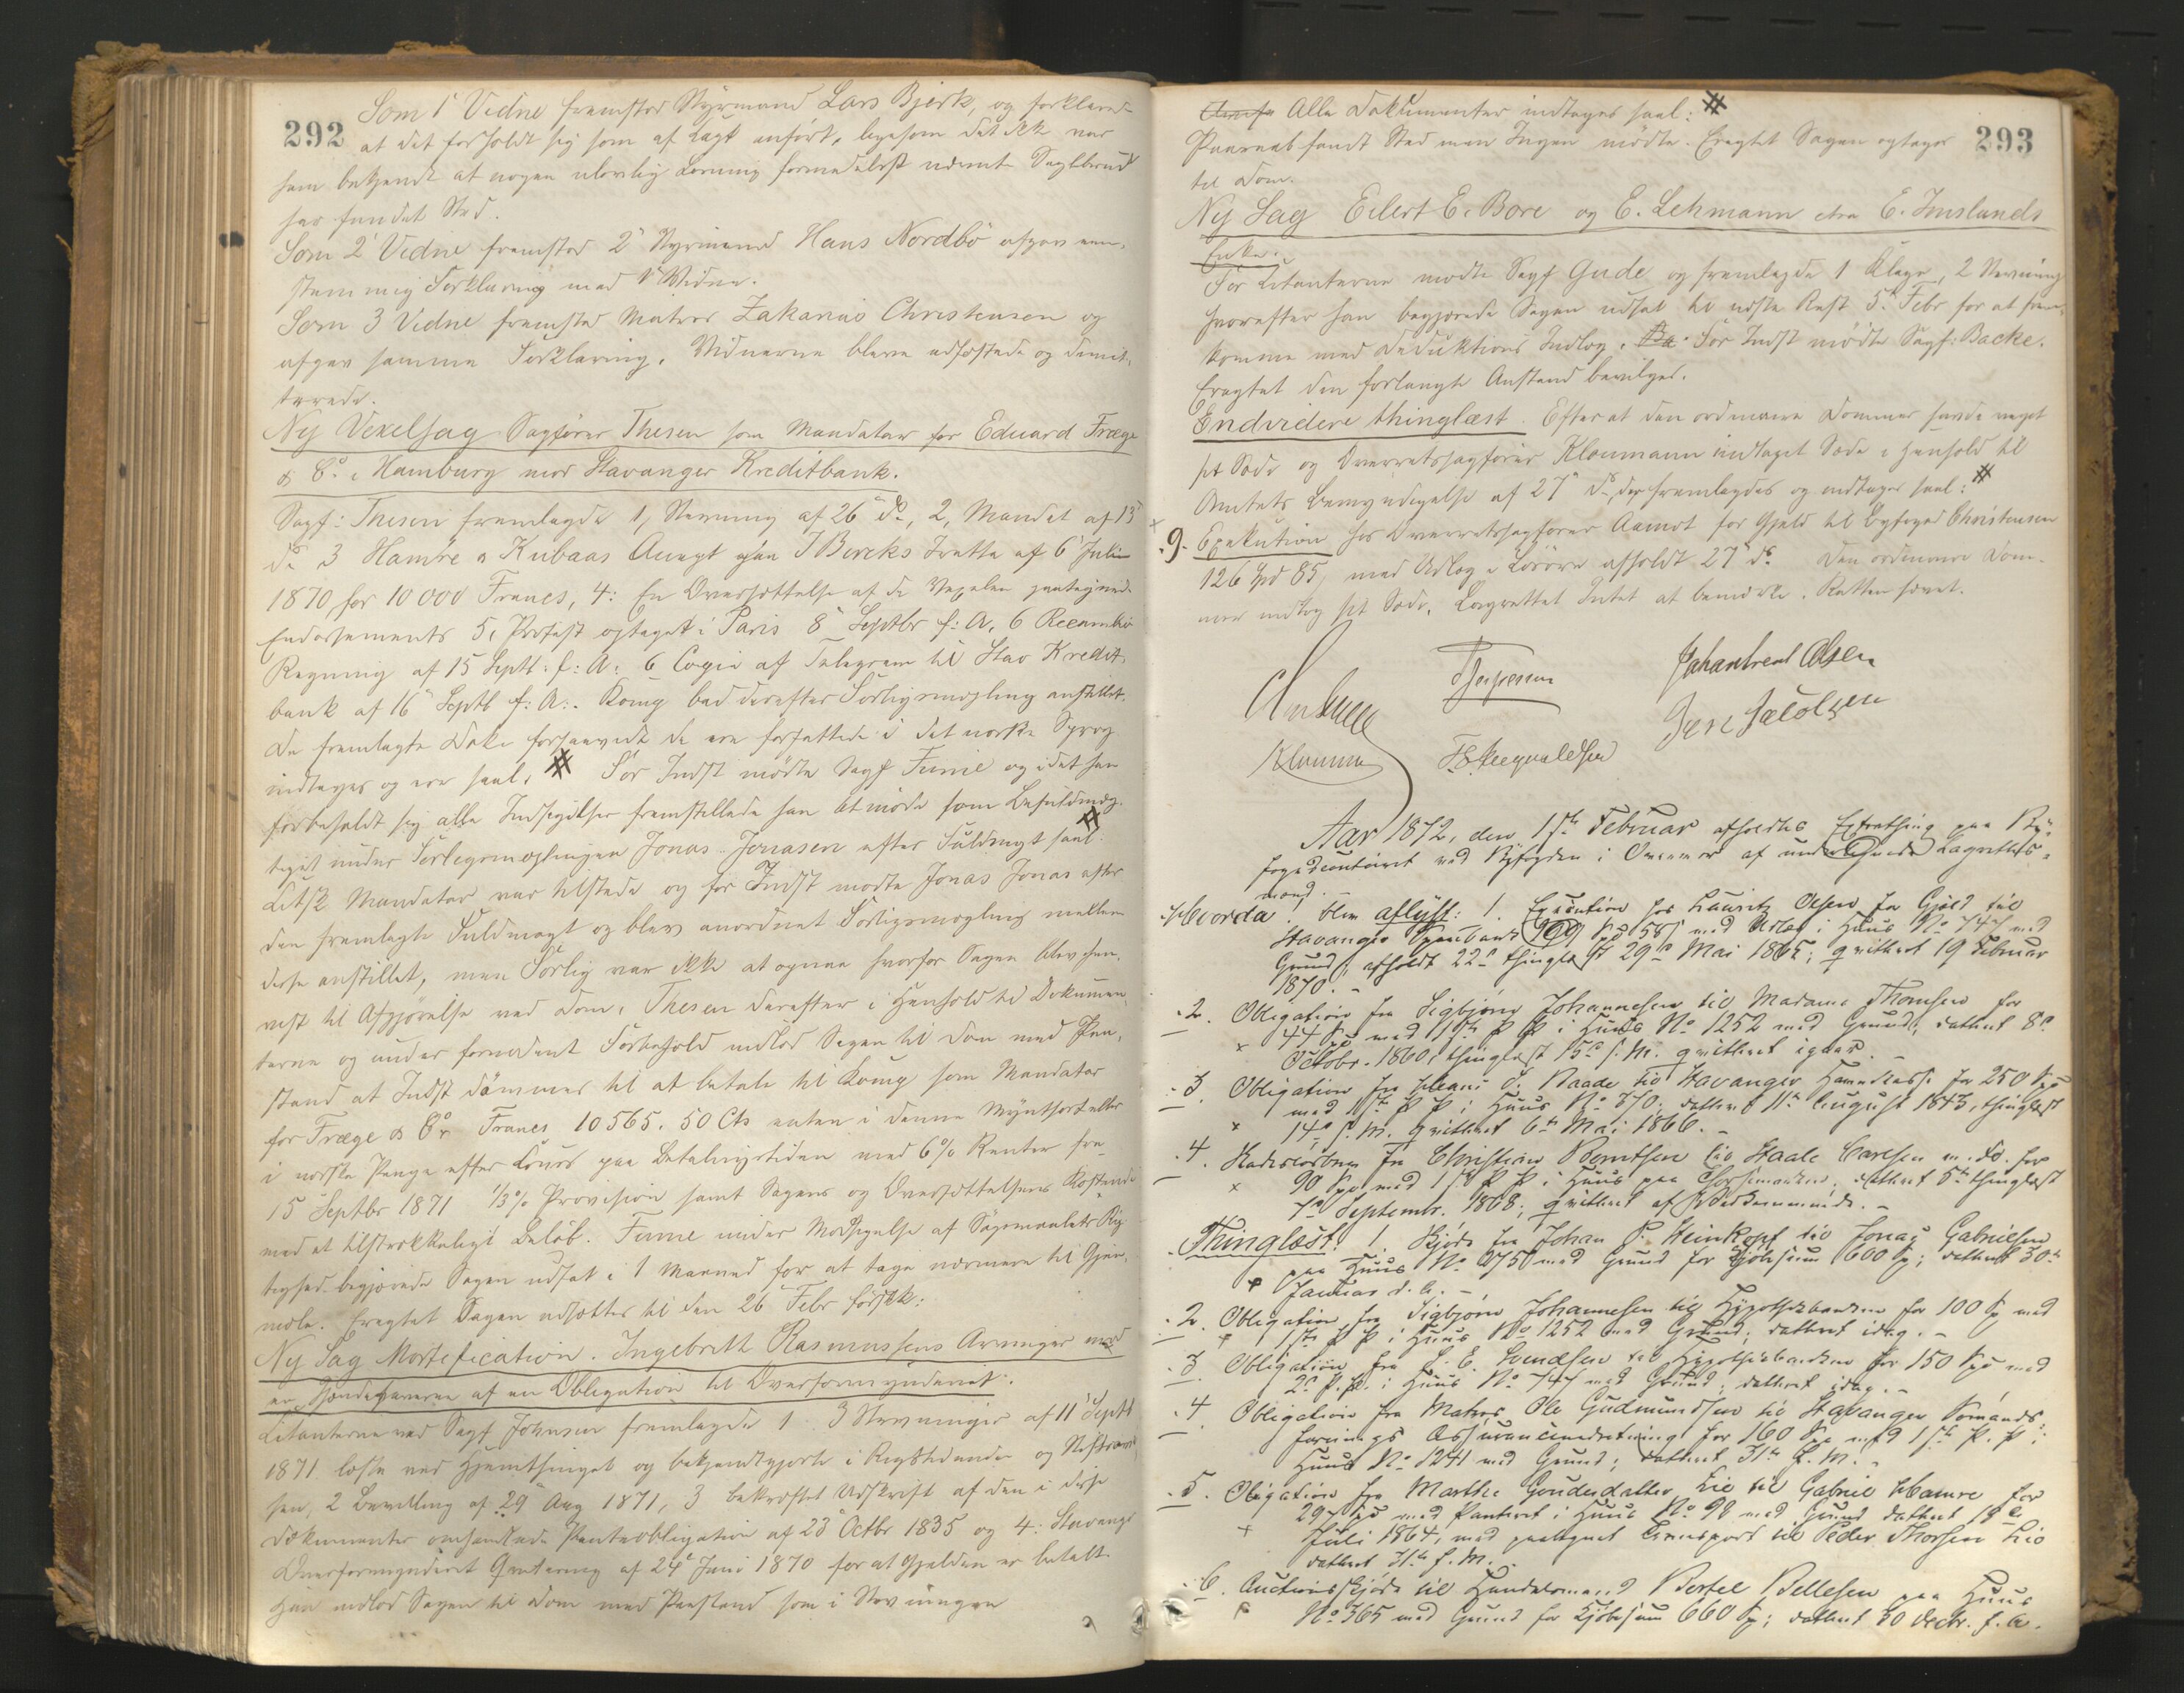 292
Som 1' Vidne fremstod Styrmand Lars Bjerk, og forklarede
at det forholdt sig som af Capt anført, ligesom det ikke var
ham bekjendt at nogen ulovlig Losning formedelst nævnte
har fundet Sted.
Som 2' Vidne fremstod 2' Styrmand Hans Nordbö afgav een-
stemmig Forklaring med 1' Vidne.
Som 3 Vidne fremstod Matros Zakarias Christensen og
afgav samme Forklaring. Vidnerne bleve edfæstede og dimit-
terede.
Ny Vexelsag Sagfører Thesen som Mandatar for Eduard Fræge
& Co. i Hamburg mod Stavanger Kreditbank.
Sagf: Thesen fremlagde 1, Stevning af 26' ds, 2, Mandat af 13'
ds 3 Hamre & Kubaas Accept paa J Bercks Tratte af 6' Juli
1870 for 10000 Francs, 4: En Oversættelse af de Vexelen paategnede
Endossements 5, Protest optaget i Paris 8' Septbr f: A, 6 Recambio
Regning af 15 Septb: f: A: 6 Copie af Telegram til Stav Kredit-
bank af 16' Septb f: A:. Komp bad derefter Forligsmægling anstillet.
De fremlagte Dok: forsaavidt de ere forfattede i det norske Sprog
indtages og ere saal. # For Indst mødte Sagf Fume og idet han
forbeholdt sig alle Indsigelser fremstillede han at møde som Befuldmæg-
tiget under Forligsmæglingen Jonas Jonasen efter Fuldmagt saal #
Citst: Mandatar var tilstede og for Indst mødte Jonas Jonas efter
den fremlagte Fuldmagt og blev anordnet Forligsmægling mellem
disse anstillet, men Forlig var ikke at opnaa hvorfor Sagen blev hen-
vist til Afgjørelse ved Dom. Thesen derefter i Henhold til Dokumen-
terne og under fornødent Forbehold indlod Sagen til Dom med Paa-
stand at Indst dömmes til at betale til Komp som Mandatar
for Fræge & Co. Francs 10565. 50 Cts enten i denne Myntsort eller
i norske Penge efter Cours paa Betalingstiden med 6% Renter fra
15 Septbr 1871 1/3% Provision samt Sagens og Oversættelsens Kostende
med et tilstrækkeligt Beløb. Fume under Modsigelse af Søgsmaalets Rig-
tighed begjærede Sagen udsat i 1 Maaned for at tage nærmere til Gjen-
mæle. Eragtet Sagen udsættes til den 26 Febr førstk:
Ny Sag Mortification. Ingebreth Rasmussens Arvinger mod
en Ihændehaverne af en Obligation til Overformynderiet.
Citanterne ved Sagf Johnsen fremlagde 1 3 Stevninger af 11' Septb
1871 læste ved Hjemthinget og bekjendtgjorte i Rigstidende og
sen, 2 Bevilling af 29' Aug 1871, 3 bekræftet Udskrift af den i disse
Dokumenter omhandlede Panteobligation af 23' Octbr 1835 og 4: Stavanger
Overformynderiet Qvittering af 24' Juni 1870 for at Gjælden er betalt.
Han indlod Sagen til Dom med Paastand som i Stevningen
293
Alle Dokumenter indtages saal: #
Paaraab fandt Sted men Ingen mødte. Eragtet Sagen optages
til Dom.
Ny Sag Eilert E. Bore og E. Lehmann ctra E. Imslands
Enke.
For Citanterne mødte Sagf Gude og fremlagde 1 Klage, 2 Stevning
hvorefter han begjærede Sagen udsat til næste Ret 5' Febr for at frem-
komme med Deduktions Indlæg. For Indst mødte Sagf: Backe.
Eragtet den forlangte Anstand bevilges.
Endvidere thinglæst. Efter at den ordinære Dommer havde veget
sit Sæde og Overretssagfører Kloumann indtaget Sæde i Henhold til
Amtets Bemyndigelse af 27' ds, der fremlagdes og indtages saal: #
9. Exekution hos Overretssagfører Aamot for Gjæld til Byfoged Christensen
126 Spd 85, med Udlæg i Løsøre afholdt 27' ds. Den ordinære Dom-
mer indtog sit Sæde. Lagrettet Intet at bemærke. Retten hævet.
Johan Olsen
Jens Jacobsen
Kloumann
Aar 1872, den 1ste Februar afholdtes Extrathing paa By-
fogedcontoiret ved Byfogden i Overvær af undertegnede Lagrettes-
mænd.
Hvorda blev aflyst: 1. Execution hos Lauritz Olsen for Gjæld til
Stavanger Sparebank 99 Spd 58 ß med Udlæg i Huus No 747 med
Grund, afholdt 22de thinglæst 29de Mai 1865; qvitteret 19 Februar
1870.
2. Obligation fra Sigbjørn Johannesen til Madame Thomsen for
44 Spd med 1ste P. P. i Huus No 1252 med Grund, dateret 8de
Octobr. 1860, thinglæst 15de s. M. qvitteret igaar.
3. Obligation fra Hans J. Raade til Stavanger Havnekasse for 250 Spd
med 1ste P. P. i Huus No 370; dateret 11te August 1843, thinglæst
14de s. M. qvitteret 6te Mai 1866.
4. Kadesløsbrev fra Christian Berntsen til Staale Carlsen m. fl. for
90 Spd med 1ste P. P. i Huus paa; dateret 5te thinglæst
7de Septembr. 1868; qvitteret af Vedkommende.
Thinglæst: 1. Skjøde fra Johan P. Steinkopf til Jonas Gabrielsen
paa Huus No 475 med Grund for Kjøbesum 600 Sp; dateret 30te
Januar d. A.
2. Obligation fra Sigbjørn Johannesen til Hypothekbanken for 100 Sp med
1ste P. P. i Huus No 1252 med Grund; dateret idag.
3. Obligation fra L. E. Svendsen til Hypothekbanken for 150 Spd med
2de P. P. i Huus No 747 med Grund; dateret idag.
4. Obligation fra Matros Ole Gudmundsen til Stavanger Sømands-
forenings Assuranceindretning for 160 Spd med 1ste P. P. i
Huus No 1241 med Grund; dateret 31te f. M.
5. Obligation fra Marthe Goudesdatter Lie til Gabriel Hamre for
297 Spd med Panteret i Huus No 98 med Grund dateret 18de
Juli 1864, med paategnet Transport til Peder Thorsen Lie
dateret 31te f. M.
6. Auctionsskjøde til Handelsmand Bertel Bellesen paa Huus
No 365 med Grund for Kjøbesum 660 Sp; dateret 30 Decbr. f. A.